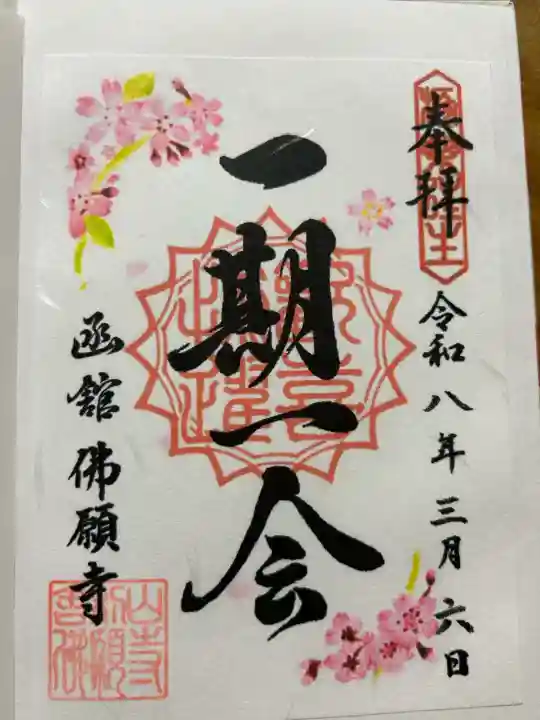 奉拝
令和八年三月六日
一期一会
函舘佛願寺